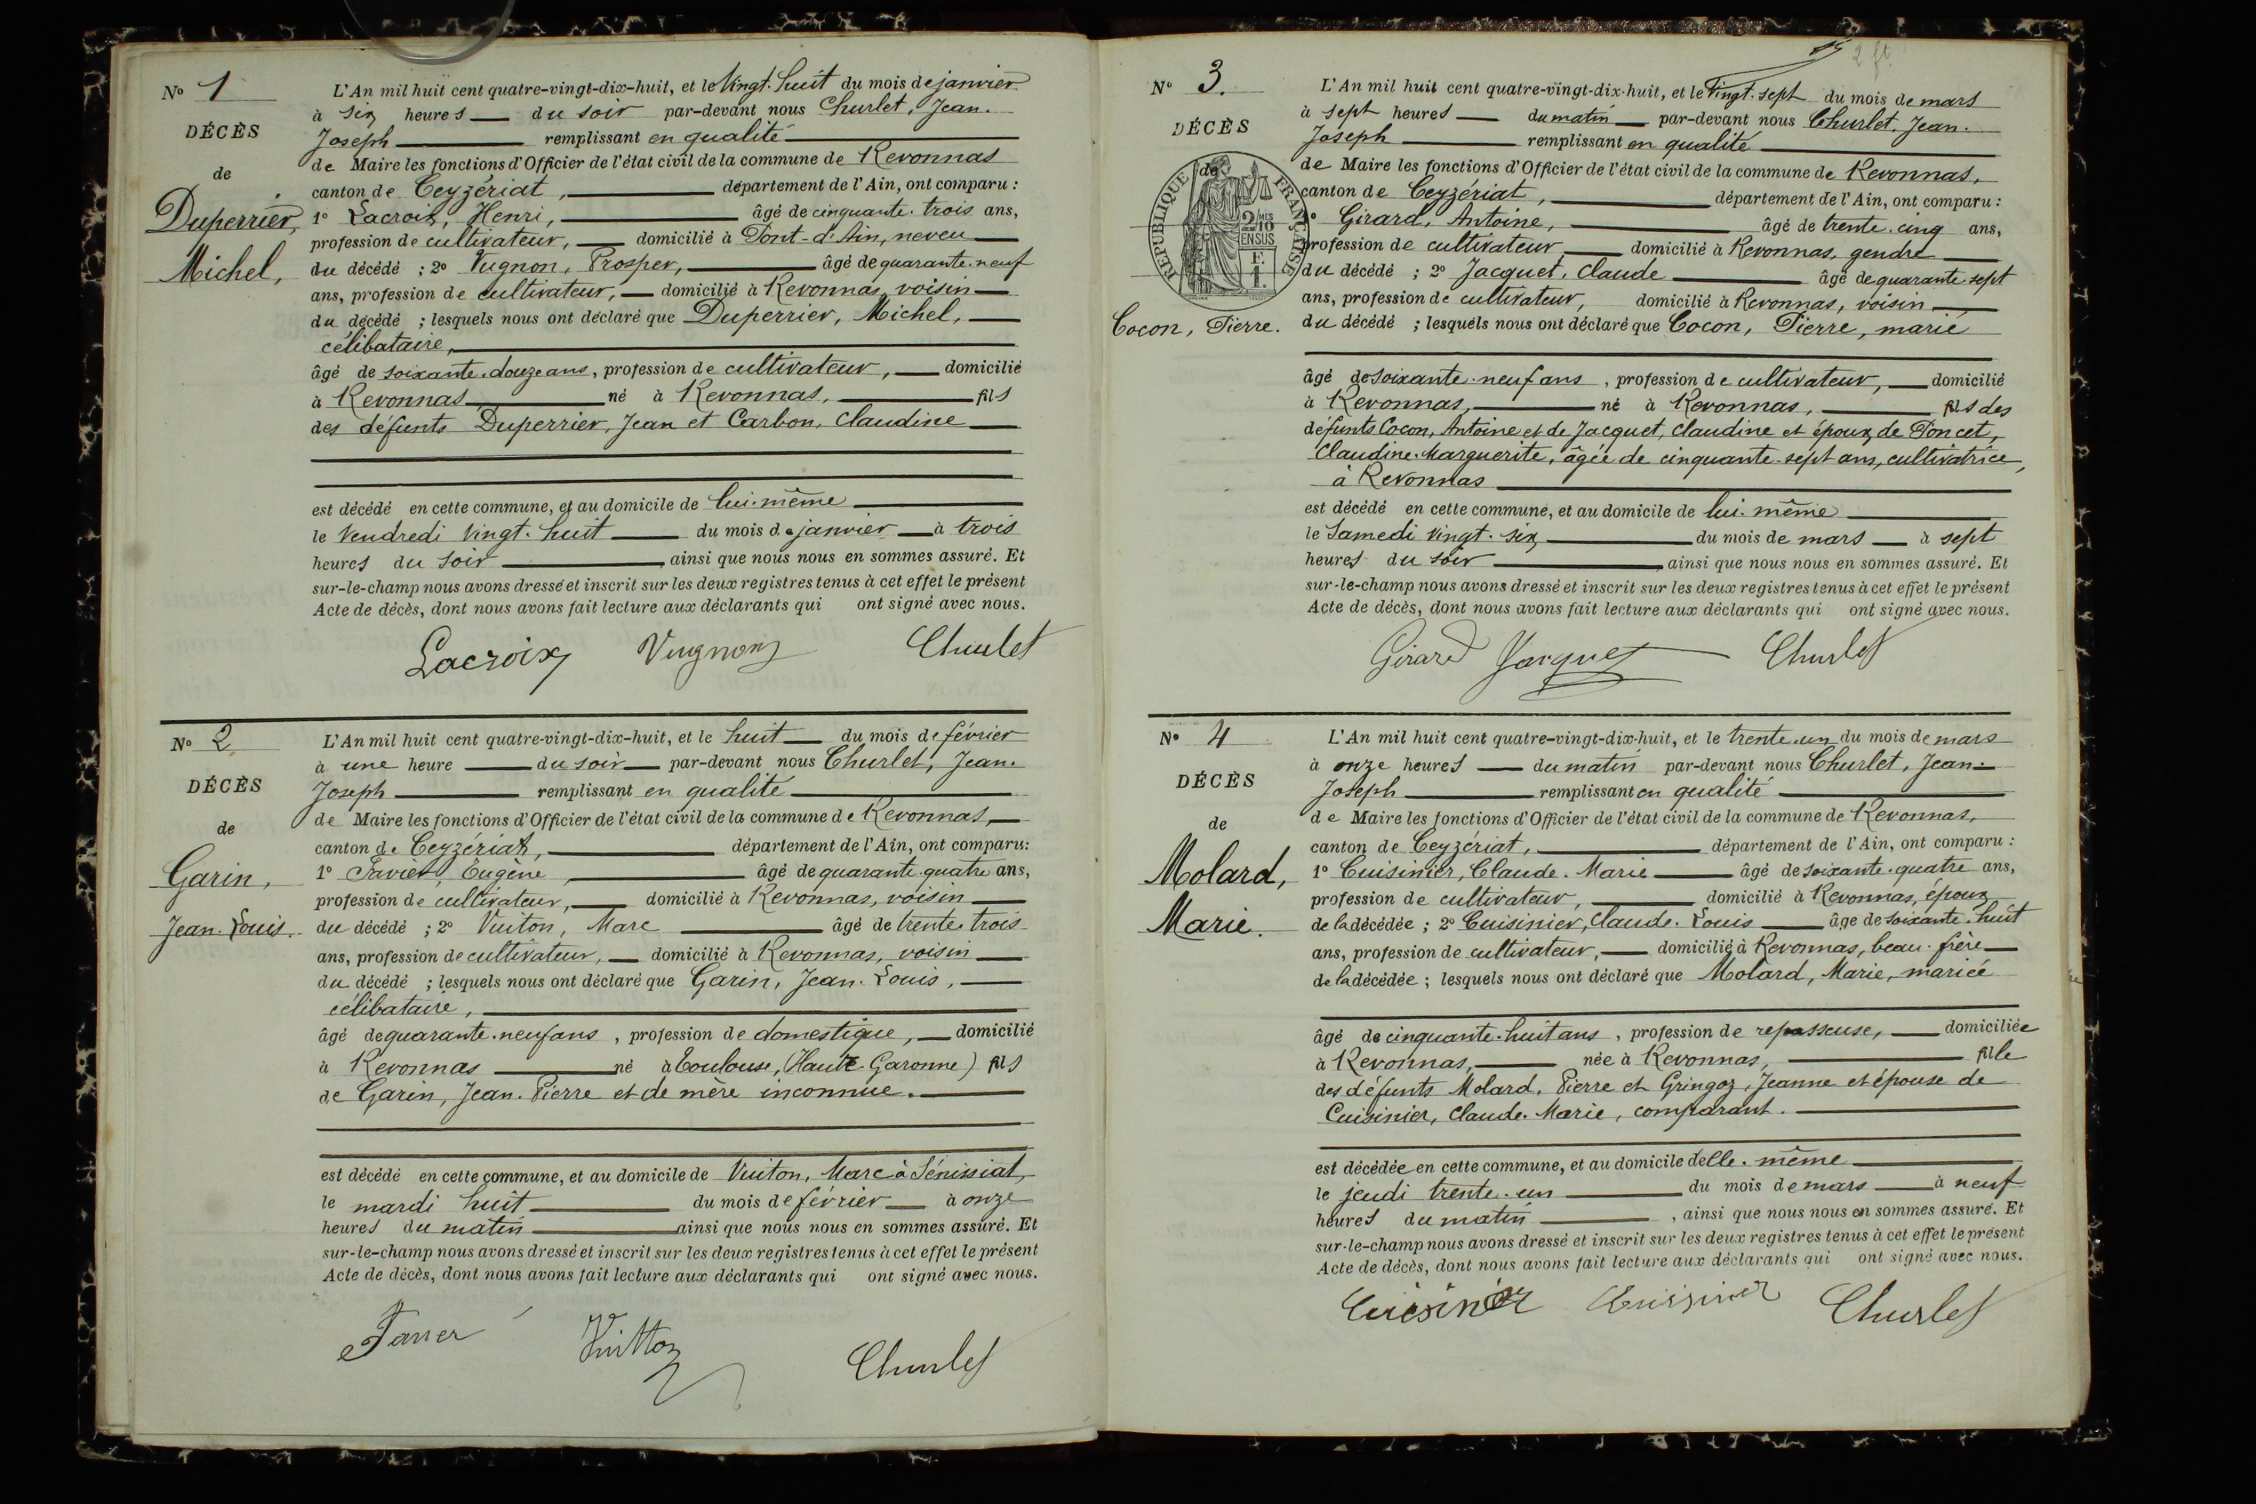 N° 1
DÉCÈS
de
Duperrier,
Michel,
L'An mil huit cent quatre-vingt-dix-huit, et le Vingt-huit du mois de janvier
à six heures du soir par-devant nous Churlet, Jean-
Joseph remplissant en qualité
de Maire les fonctions d'Officier de l'état civil de la commune de Revonnas
canton de Ceyzériat, département de l'Ain, ont comparu :
1° Lacroix, Henri, âgé de cinquante-trois ans,
profession de cultivateur, domicilié à Pont-d'Ain, neveu
du décédé ; 2° Vugnon, Prosper, âgé de quarante-neuf
ans, profession de cultivateur, domicilié à Revonnas, voisin
du décédé ; lesquels nous ont déclaré que Duperrier, Michel,
célibataire,
âgé de soixante-douze ans, profession de cultivateur, domicilié
à Revonnas, né à Revonnas, fils
des défunts Duperrier, Jean et Carbon, Claudine
est décédé en cette commune, et au domicile de lui-même
le Vendredi vingt-huit du mois de janvier à trois
heures du soir ainsi que nous nous en sommes assuré. Et
sur-le-champ nous avons dressé et inscrit sur les deux registres tenus à cet effet le présent
Acte de décès, dont nous avons fait lecture aux déclarants qui ont signé avec nous.
Lacroix Vugnon Churlet
N° 2
DÉCÈS
de
Garin,
Jean-Louis.
L'An mil huit cent quatre-vingt-dix-huit, et le huit du mois de février
à une heure du soir par-devant nous Churlet, Jean-
Joseph remplissant en qualité
de Maire les fonctions d'Officier de l'état civil de la commune de Revonnas,
canton de Ceyzériat, département de l'Ain, ont comparu:
1° Favier, Eugène, âgé de quarante-quatre ans,
profession de cultivateur, domicilié à Revonnas, voisin
du décédé ; 2° Vuiton, Marc âgé de trente-trois
ans, profession de cultivateur, domicilié à Revonnas, voisin
du décédé ; lesquels nous ont déclaré que Garin, Jean-Louis,
célibataire,
âgé de quarante-neuf ans, profession de domestique, domicilié
à Revonnas né à Toulouse, (Haute-Garonne) fils
de Garin, Jean-Pierre et de mère inconnue.
est décédé en cette commune, et au domicile de Vuiton, Marc à Sénissiat,
le mardi huit du mois de février à onze
heures du matin ainsi que nous nous en sommes assuré. Et
sur-le-champ nous avons dressé et inscrit sur les deux registres tenus à cet effet le présent
Acte de décès, dont nous avons fait lecture aux déclarants qui ont signé avec nous.
Vuitton Churlet
2 ft
N° 3.
DÉCÈS
de
RÉPUBLIQUE FRANÇAISE
2/10 MES
EN SUS
F.
1.
Cocon, Pierre.
L'An mil huit cent quatre-vingt-dix-huit, et le Vingt-sept du mois de mars
à sept heures du matin par-devant nous Churlet, Jean-
Joseph remplissant en qualité
de Maire les fonctions d'Officier de l'état civil de la commune de Revonnas,
canton de Ceyzériat, département de l'Ain, ont comparu :
1° Girard, Antoine, âgé de trente-cinq ans,
profession de cultivateur domicilié à Revonnas, gendre
du décédé ; 2° Jacquet, Claude âgé de quarante-sept
ans, profession de cultivateur, domicilié à Revonnas, voisin
du décédé ; lesquels nous ont déclaré que Cocon, Pierre, marié
âgé de soixante-neuf ans, profession de cultivateur, domicilié
à Revonnas, né à Revonnas, fils des
défunts Cocon, Antoine et de Jacquet, Claudine et époux de Poncet,
Claudine-Marguerite, âgée de cinquante-sept ans, cultivatrice,
à Revonnas
est décédé en cette commune, et au domicile de lui-même
le Samedi vingt-six du mois de mars à sept
heures du soir, ainsi que nous nous en sommes assuré. Et
sur-le-champ nous avons dressé et inscrit sur les deux registres tenus à cet effet le présent
Acte de décès, dont nous avons fait lecture aux déclarants qui ont signé avec nous.
Girard Jacquet Churlet
N° 4
DÉCÈS
de
Molard,
Marie.
L'An mil huit cent quatre-vingt-dix-huit, et le trente-un du mois de mars
à onze heures du matin par-devant nous Churlet, Jean-
Joseph remplissant en qualité
de Maire les fonctions d'Officier de l'état civil de la commune de Revonnas,
canton de Ceyzériat, département de l'Ain, ont comparu :
1° Cuisinier, Claude-Marie âgé de soixante-quatre ans,
profession de cultivateur, domicilié à Revonnas, époux
de la décédée ; 2° Cuisinier, Claude-Louis âgé de soixante-huit
ans, profession de cultivateur, domicilié à Revonnas, beau-frère
de la décédée ; lesquels nous ont déclaré que Molard, Marie, mariée
âgé de cinquante-huit ans, profession de repasseuse, domiciliée
à Revonnas, née à Revonnas, fille
des défunts Molard, Pierre et Gringoz, Jeanne et épouse de
Cuisinier, Claude-Marie, comparant.
est décédée en cette commune, et au domicile d'elle-même
le jeudi trente-un du mois de mars à neuf
heures du matin, ainsi que nous nous en sommes assuré. Et
sur-le-champ nous avons dressé et inscrit sur les deux registres tenus à cet effet le présent
Acte de décès, dont nous avons fait lecture aux déclarants qui ont signé avec nous.
Cuisinier Cuisinier Churlet